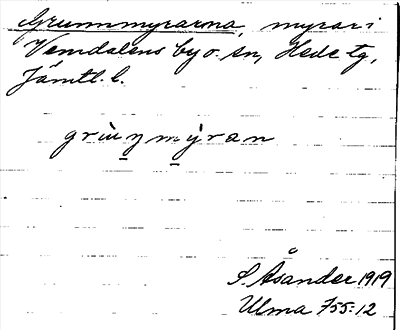 Grummmyrarna, myrar i
Vemdalens by o. sn, Hede tg,
Jämtl. l.
grùn̲m̲ýran
S. Åsander 1919
Ulma 755:12